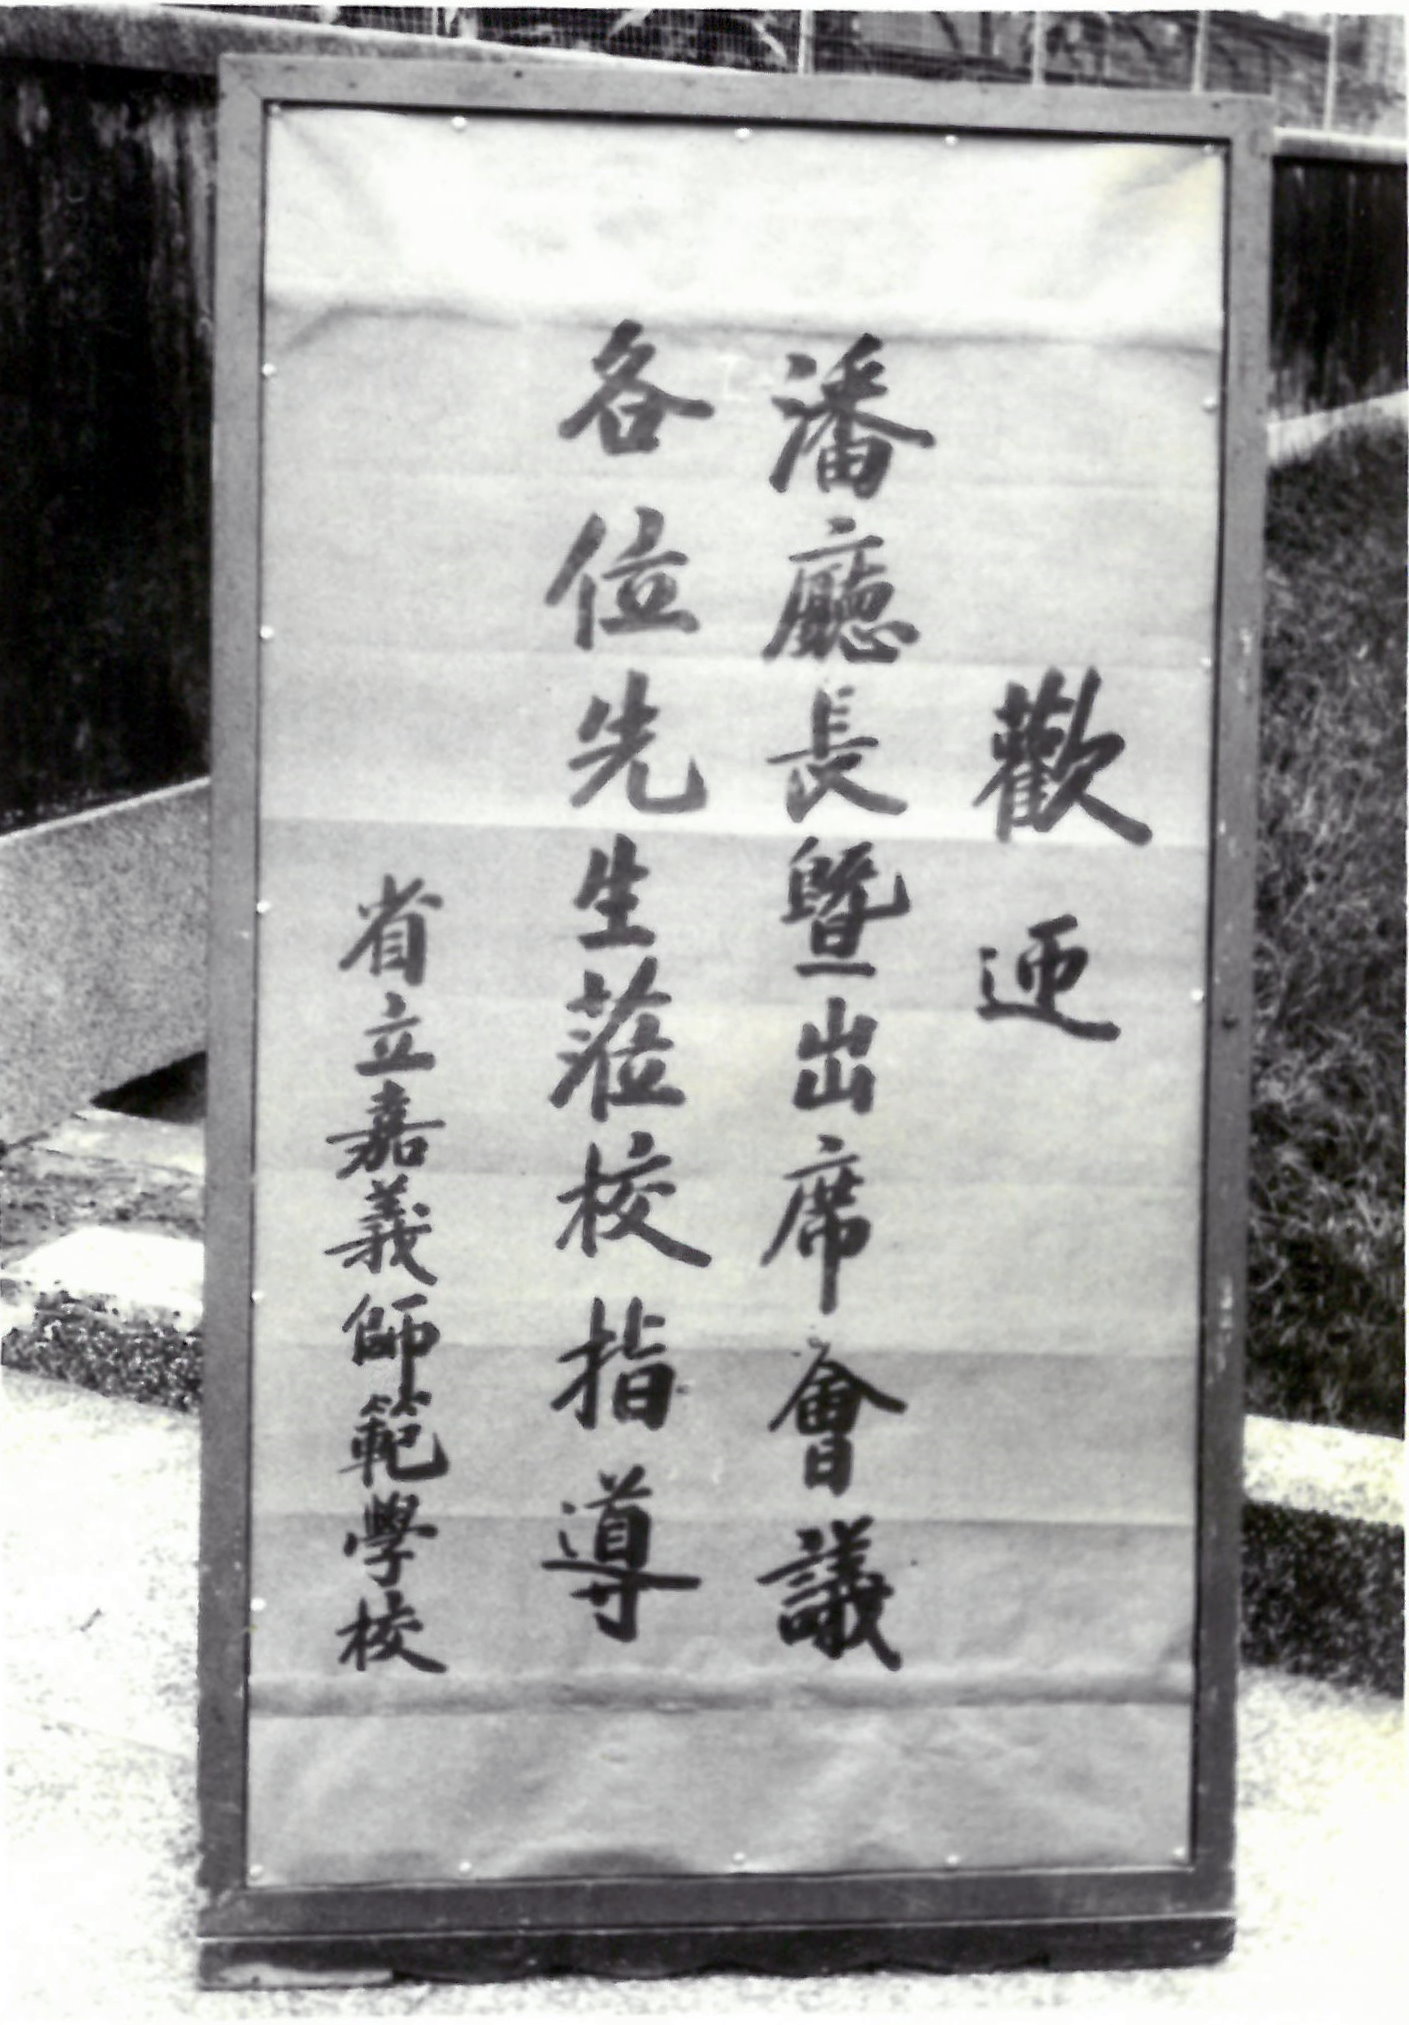 歡迎
潘廳長暨出席會議
各位先生蒞校指導
省立嘉義師範學校